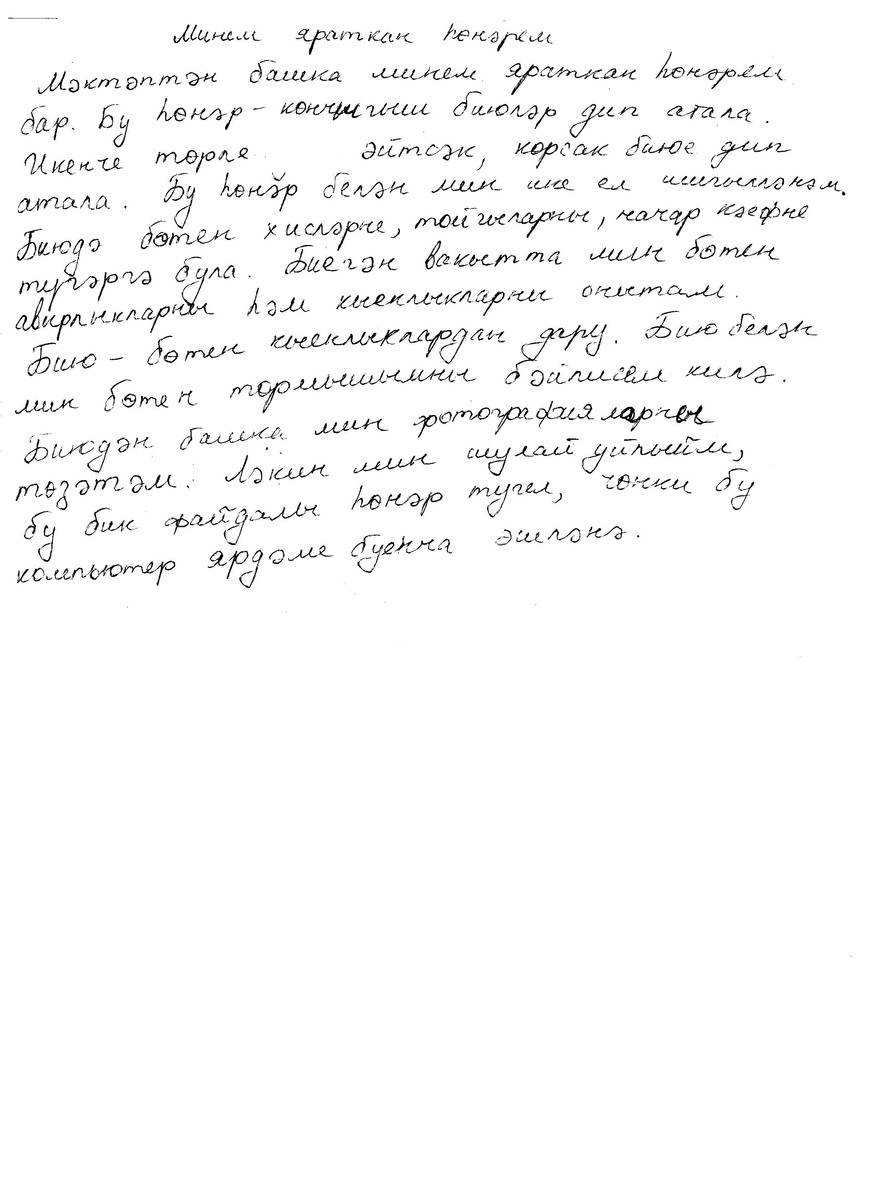 Минем яраткан һөнәрем
Мәктәптән башка минем яраткан һөнәрем
бар. Бу һөнәр – көнчыгыш биюләр дип атала.
Икенче төрле әйтсәк, корсак биюе дип
атала. Бу һөнәр белән мин ике ел шөгыльләнәм.
Биюдә бөтен хисләрне, тойгыларны, начар кәефне
түгәргә була. Биегән вакытта мин бөтен
авырлыкларны һәм кыенлыкларны онытам.
Бию – бөтен кыенлыклардан дару. Бию белән
мин бөтен тормышымны бәйлисем килә.
Биюдән башка мин фотографияләрны
төзәтәм. Ләкин мин шулай уйлыйм,
бу бик файдалы һөнәр түгел, чөнки бу
компьютер ярдәме буенча эшләнә.